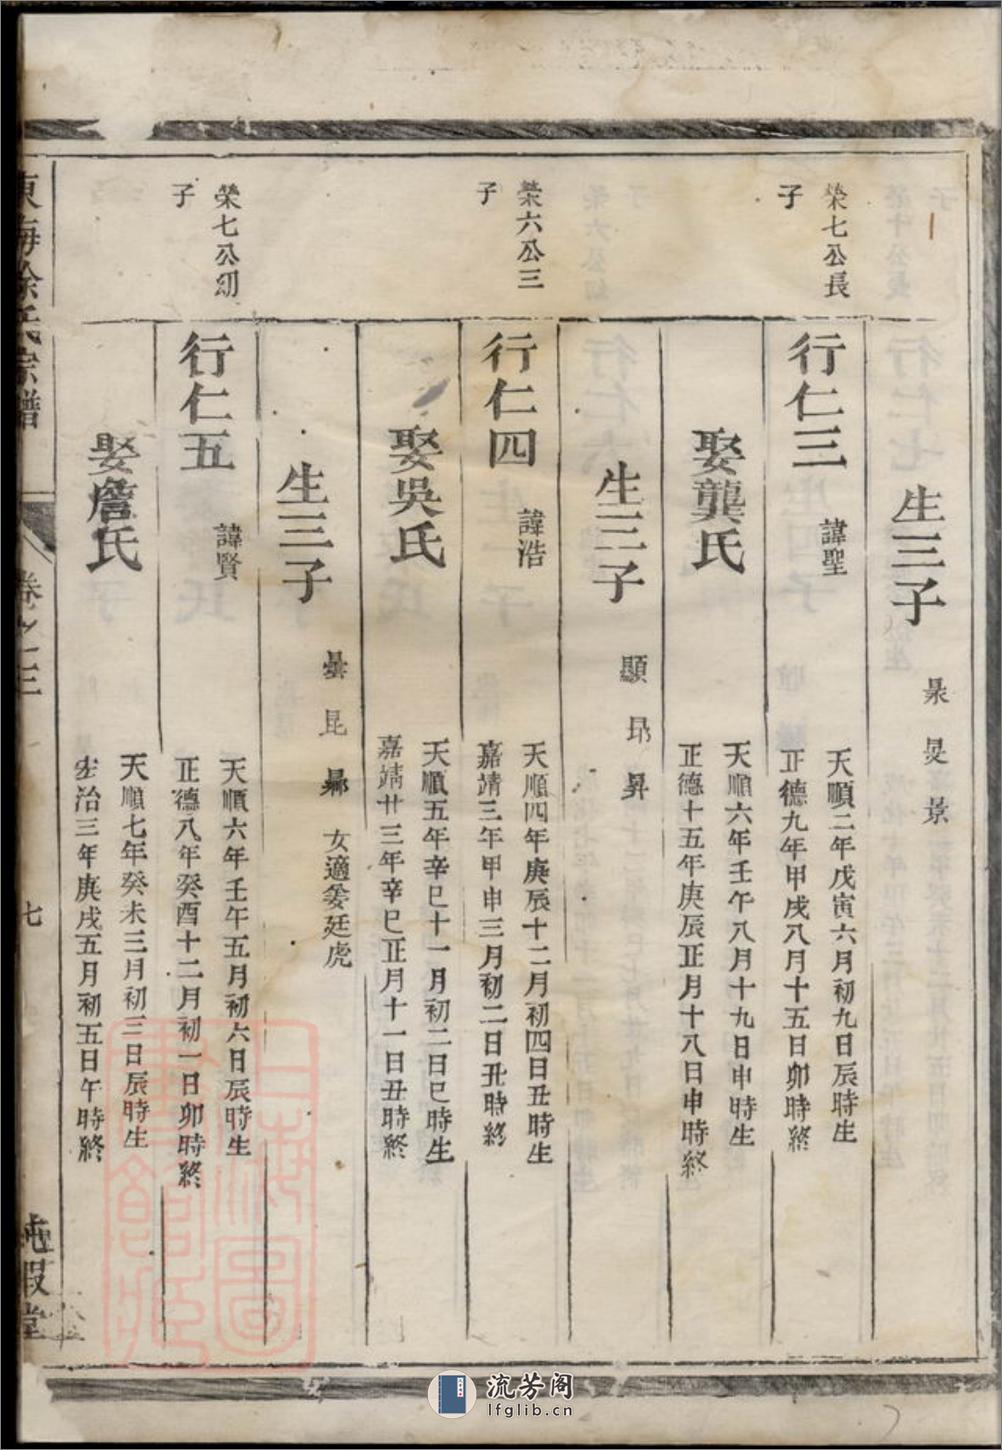 生三子
晟旻景
榮七公長
子
行仁三
諱聖
天順二年戊寅六月初九日辰時生
正德九年甲戌八月十五日卯時終
娶龔氏
天順六年壬午八月十九日申時生
正德十五年庚辰正月十八日申時終
生三子
顯昂昇
榮六公三
子
行仁四
諱浩
天順四年庚辰十二月初四日丑時生
嘉靖三年甲申三月初二日丑時終
娶吳氏
天順五年辛巳十一月初二日巳時生
嘉靖廿三年辛巳正月十一日丑時終
生三子
曇昆
女適姜廷虎
榮七公初
子
行仁五
諱賢
天順六年壬午五月初六日辰時生
正德八年癸酉十二月初一日卯時終
娶詹氏
天順七年癸未三月初三日辰時生
宏治三年庚戌五月初五日午時終
東海徐氏宗譜
卷之三
七
純嘏堂
上海圖書館藏
流芳阁
lfglib.cn